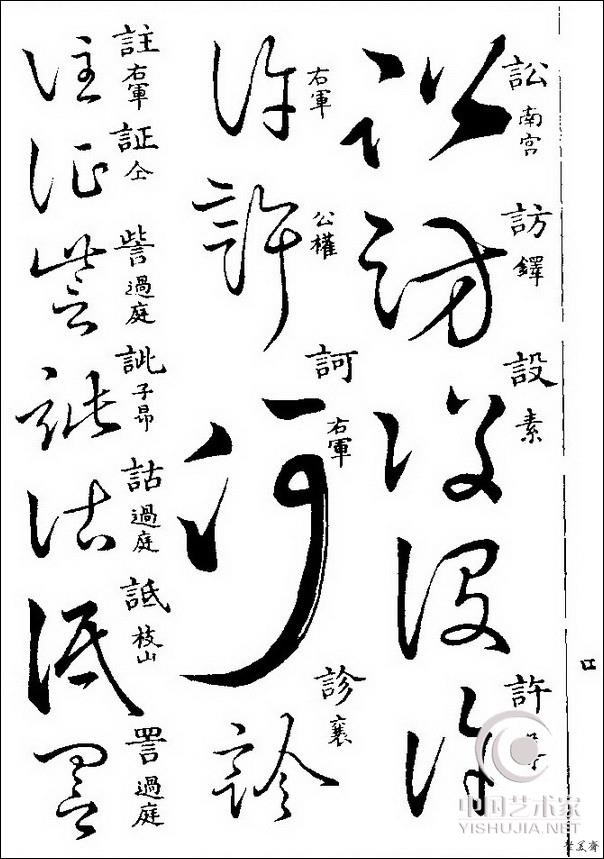 訟 南宮
訪 鐸
設 素
許
右軍
公權
訶 右軍
診 襄
註 右軍
証 仝
訾 過庭
訿 子昂
詁 過庭
詆 枝山
詈 過庭
中国艺术家
YISHUJIA.NET